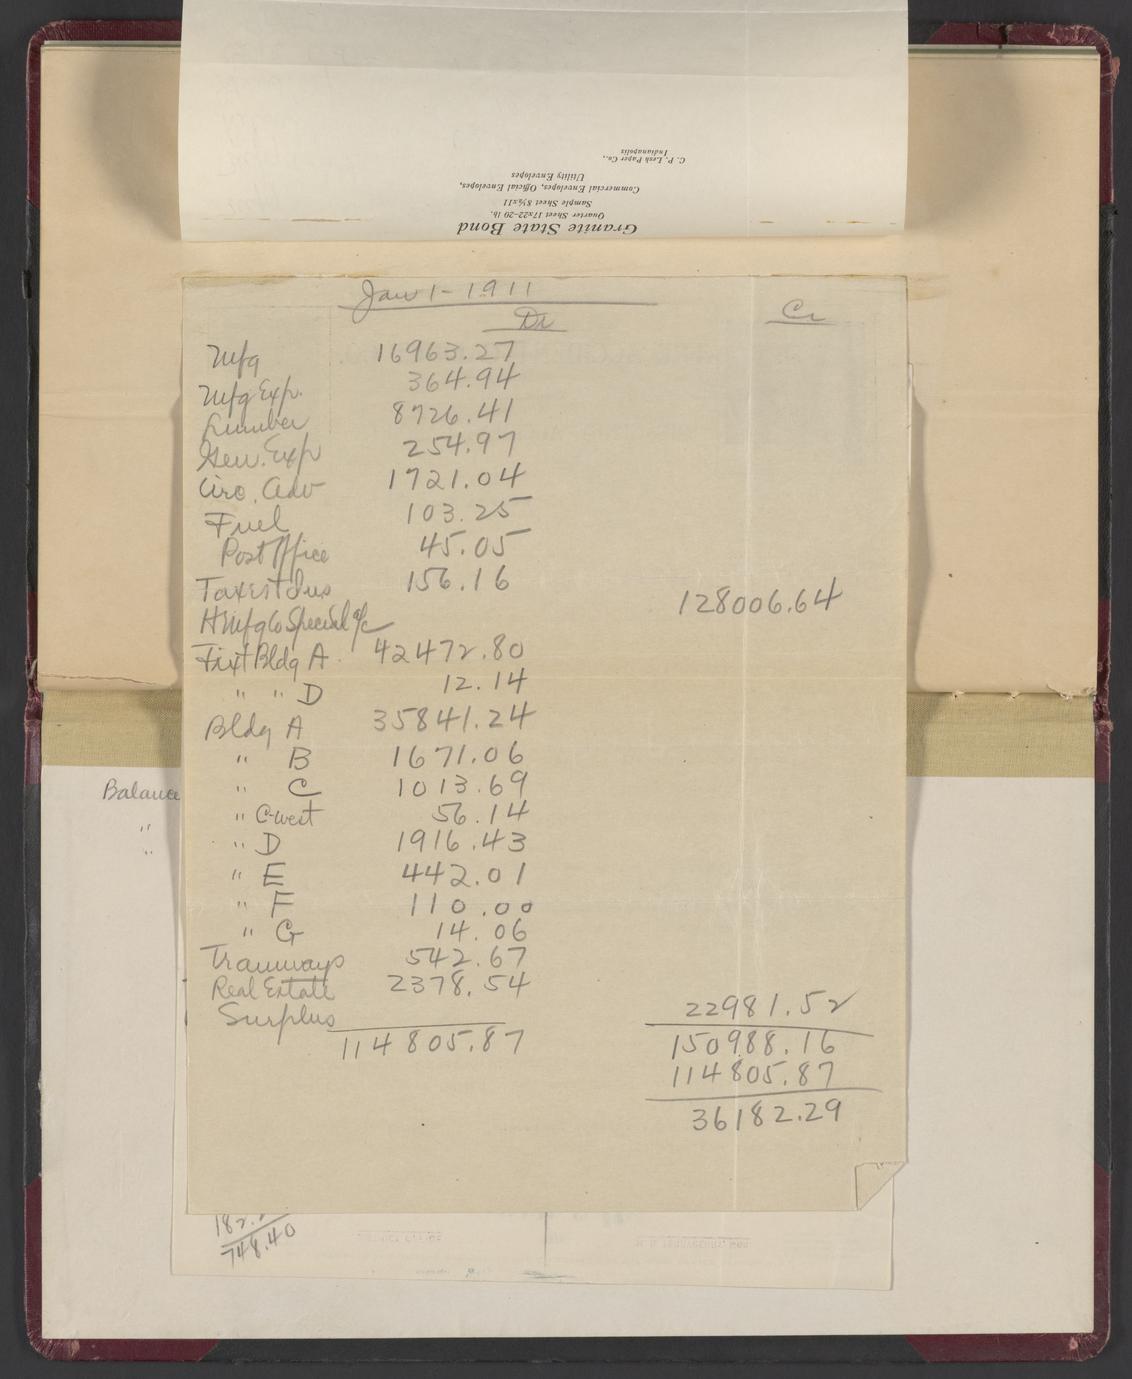 C. P. Lesh Paper Co.,
Indianapolis
Utility Envelopes
Commercial Envelopes, Official Envelopes,
Sample Sheet 8½x11
Quarter Sheet 17x22-20 lb.
Granite State Bond
Jan 1 - 1911
Dr Cr
Mfg 16963.27
Mfg Exp. 364.94
Lumber 8726.41
Gen. Exp 254.97
Circ. Adv 1721.04
Fuel 103.25
Post Office 45.05
Tax est Ins 156.16
H Mfg Co Special a/c 128006.64
Fixt Bldg A 42472.80
" " D 12.14
Bldg A 35841.24
" B 1671.06
" C 1013.69
" C-west 56.14
" D 1916.43
" E 442.01
" F 110.00
" G 14.06
Tramways 542.67
Real Estate 2378.54
Surplus 22981.52
114805.87 150988.16
114805.87
36182.29
Balance
"
"
748.40